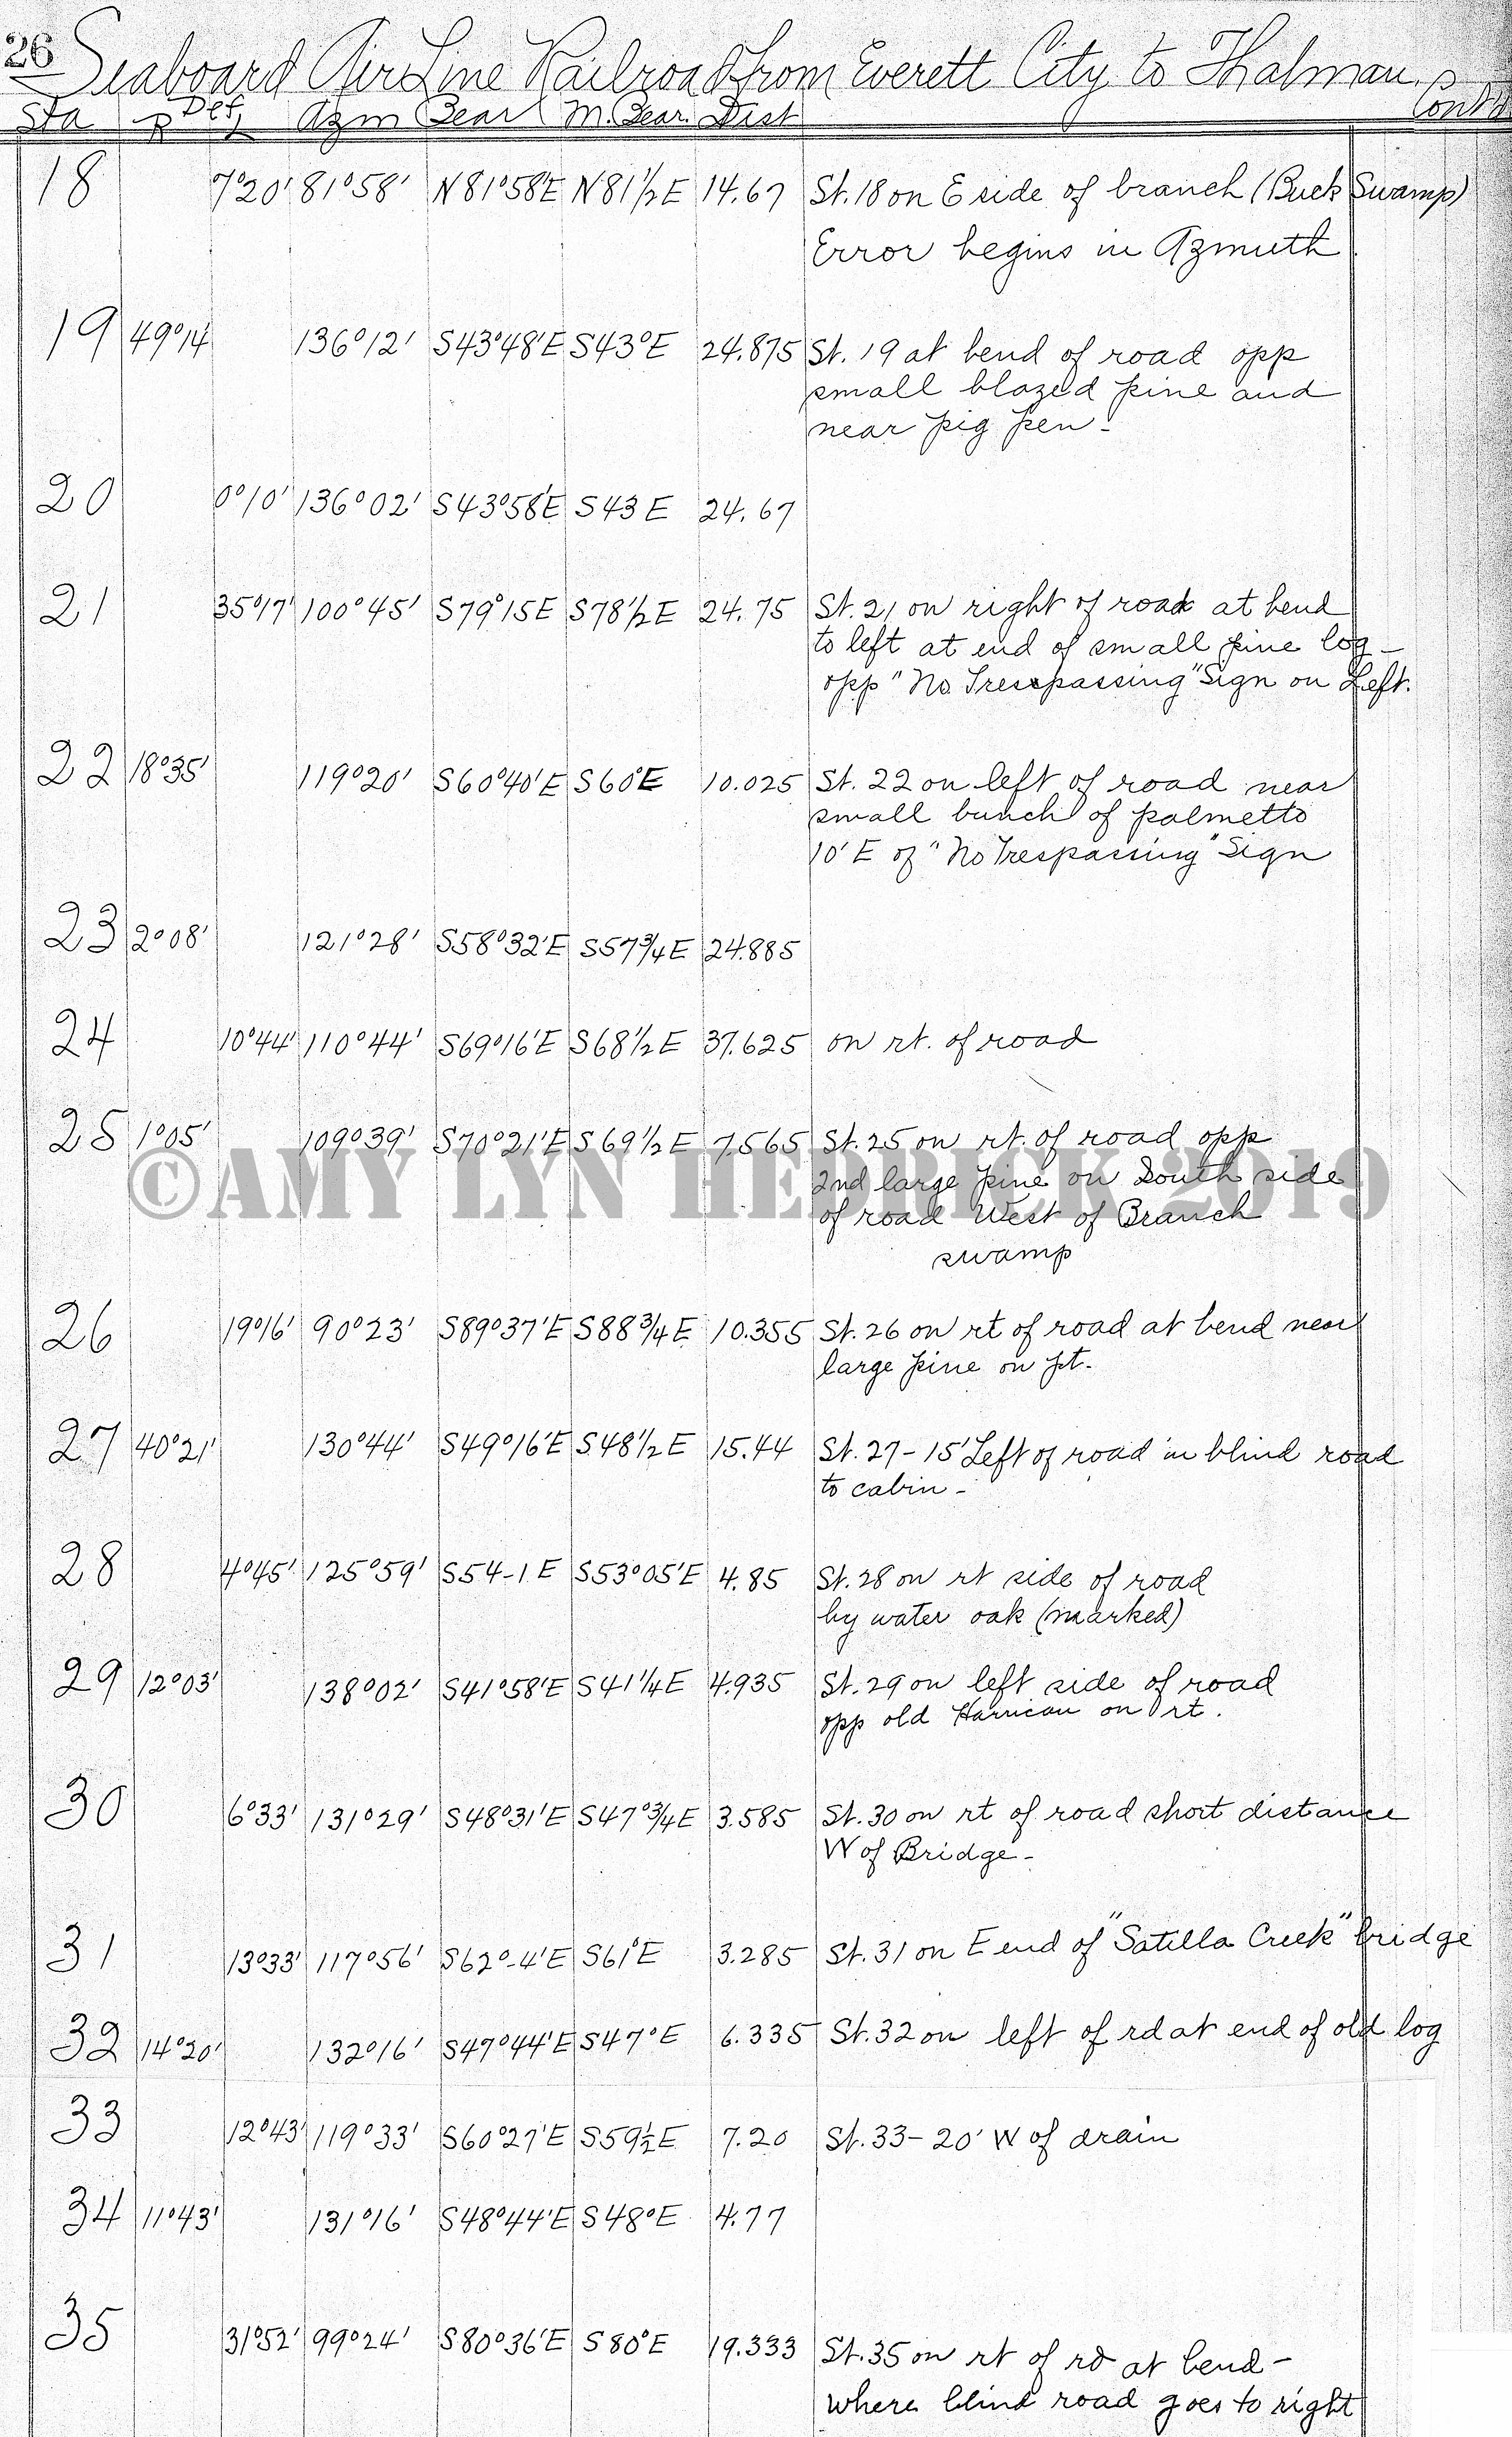 26
Seaboard Air Line Railroad from Everett City to Thalman
Cont'd
Sta R Def L Azm Bear M. Bear. Dist
18 7°20' 81°58' N81°58'E N81½E 14.67 St. 18 on E side of branch (Buck Swamp)
Error begins in Azmuth
19 49°14' 136°12' S43°48'E S43°E 24.875 St. 19 at bend of road opp
small blazed pine and
near pig pen-
20 0°10' 136°02' S43°58'E S43E 24.67
21 35°17' 100°45' S79°15E S78½E 24.75 St. 21 on right of road at bend
to left at end of small pine log-
opp "No Tresspassing" Sign on Left.
22 18°35' 119°20' S60°40'E S60°E 10.025 St. 22 on left of road near
small bunch of palmetto
10' E of "No Trespassing" Sign
23 2°08' 121°28' S58°32'E S57¾E 24.885
24 10°44' 110°44' S69°16'E S68½E 37.625 on rt. of road
25 1°05' 109°39' S70°21'E S69½E 7.565 St. 25 on rt. of road opp
2nd large pine on South side
of road West of Branch
swamp
©AMY LYN HEDRICK 2019
26 19°16' 90°23' S89°37'E S88¾E 10.355 St. 26 on rt of road at bend near
large pine on pt.
27 40°21' 130°44' S49°16'E S48½E 15.44 St. 27-15' Left of road in blind road
to cabin-
28 4°45' 125°59' S54-1E S53°05'E 4.85 St. 28 on rt side of road
by water oak (marked)
29 12°03' 138°02' S41°58'E S41¼E 4.935 St. 29 on left side of road
opp old Harrican on rt.
30 6°33' 131°29' S48°31'E S47°¾E 3.585 St. 30 on rt of road short distance
W of Bridge-
31 13°33' 117°56' S62°-4'E S61°E 3.285 St. 31 on E end of "Satilla Creek" bridge
32 14°20' 132°16' S47°44'E S47°E 6.335 St. 32 on left of rd at end of old log
33 12°43' 119°33' S60°27'E S59½E 7.20 St. 33-20' W of drain
34 11°43' 131°16' S48°44'E S48°E 4.77
35 31°52' 99°24' S80°36'E S80°E 19.333 St. 35 on rt of rd at bend-
where blind road goes to right